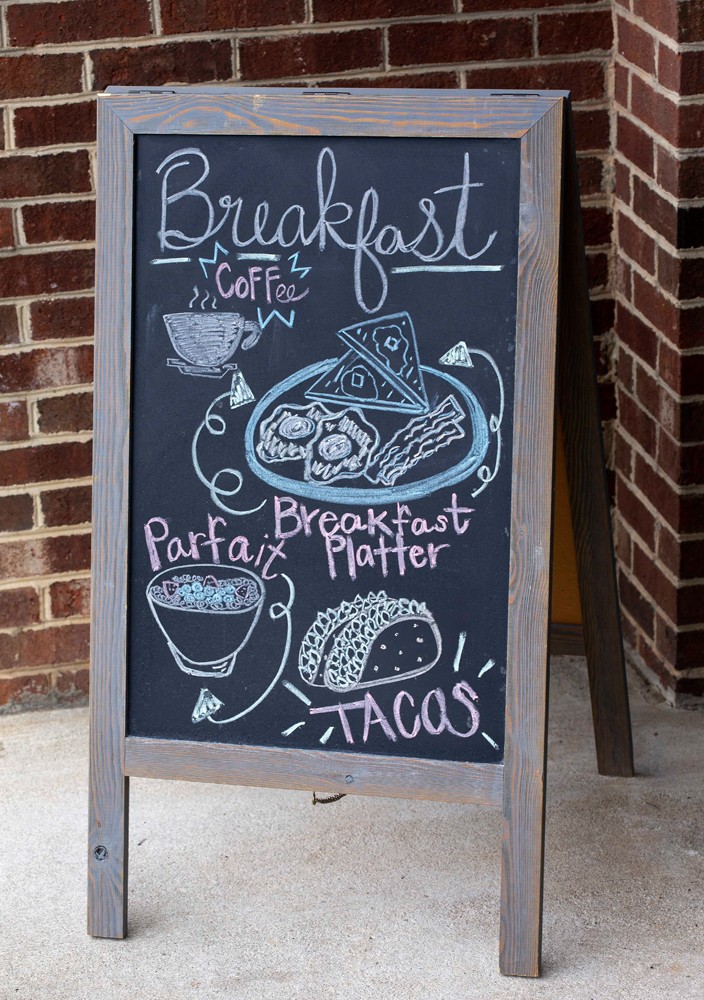 Breakfast
Coffee
Breakfast
Platter
Parfait
TACOS